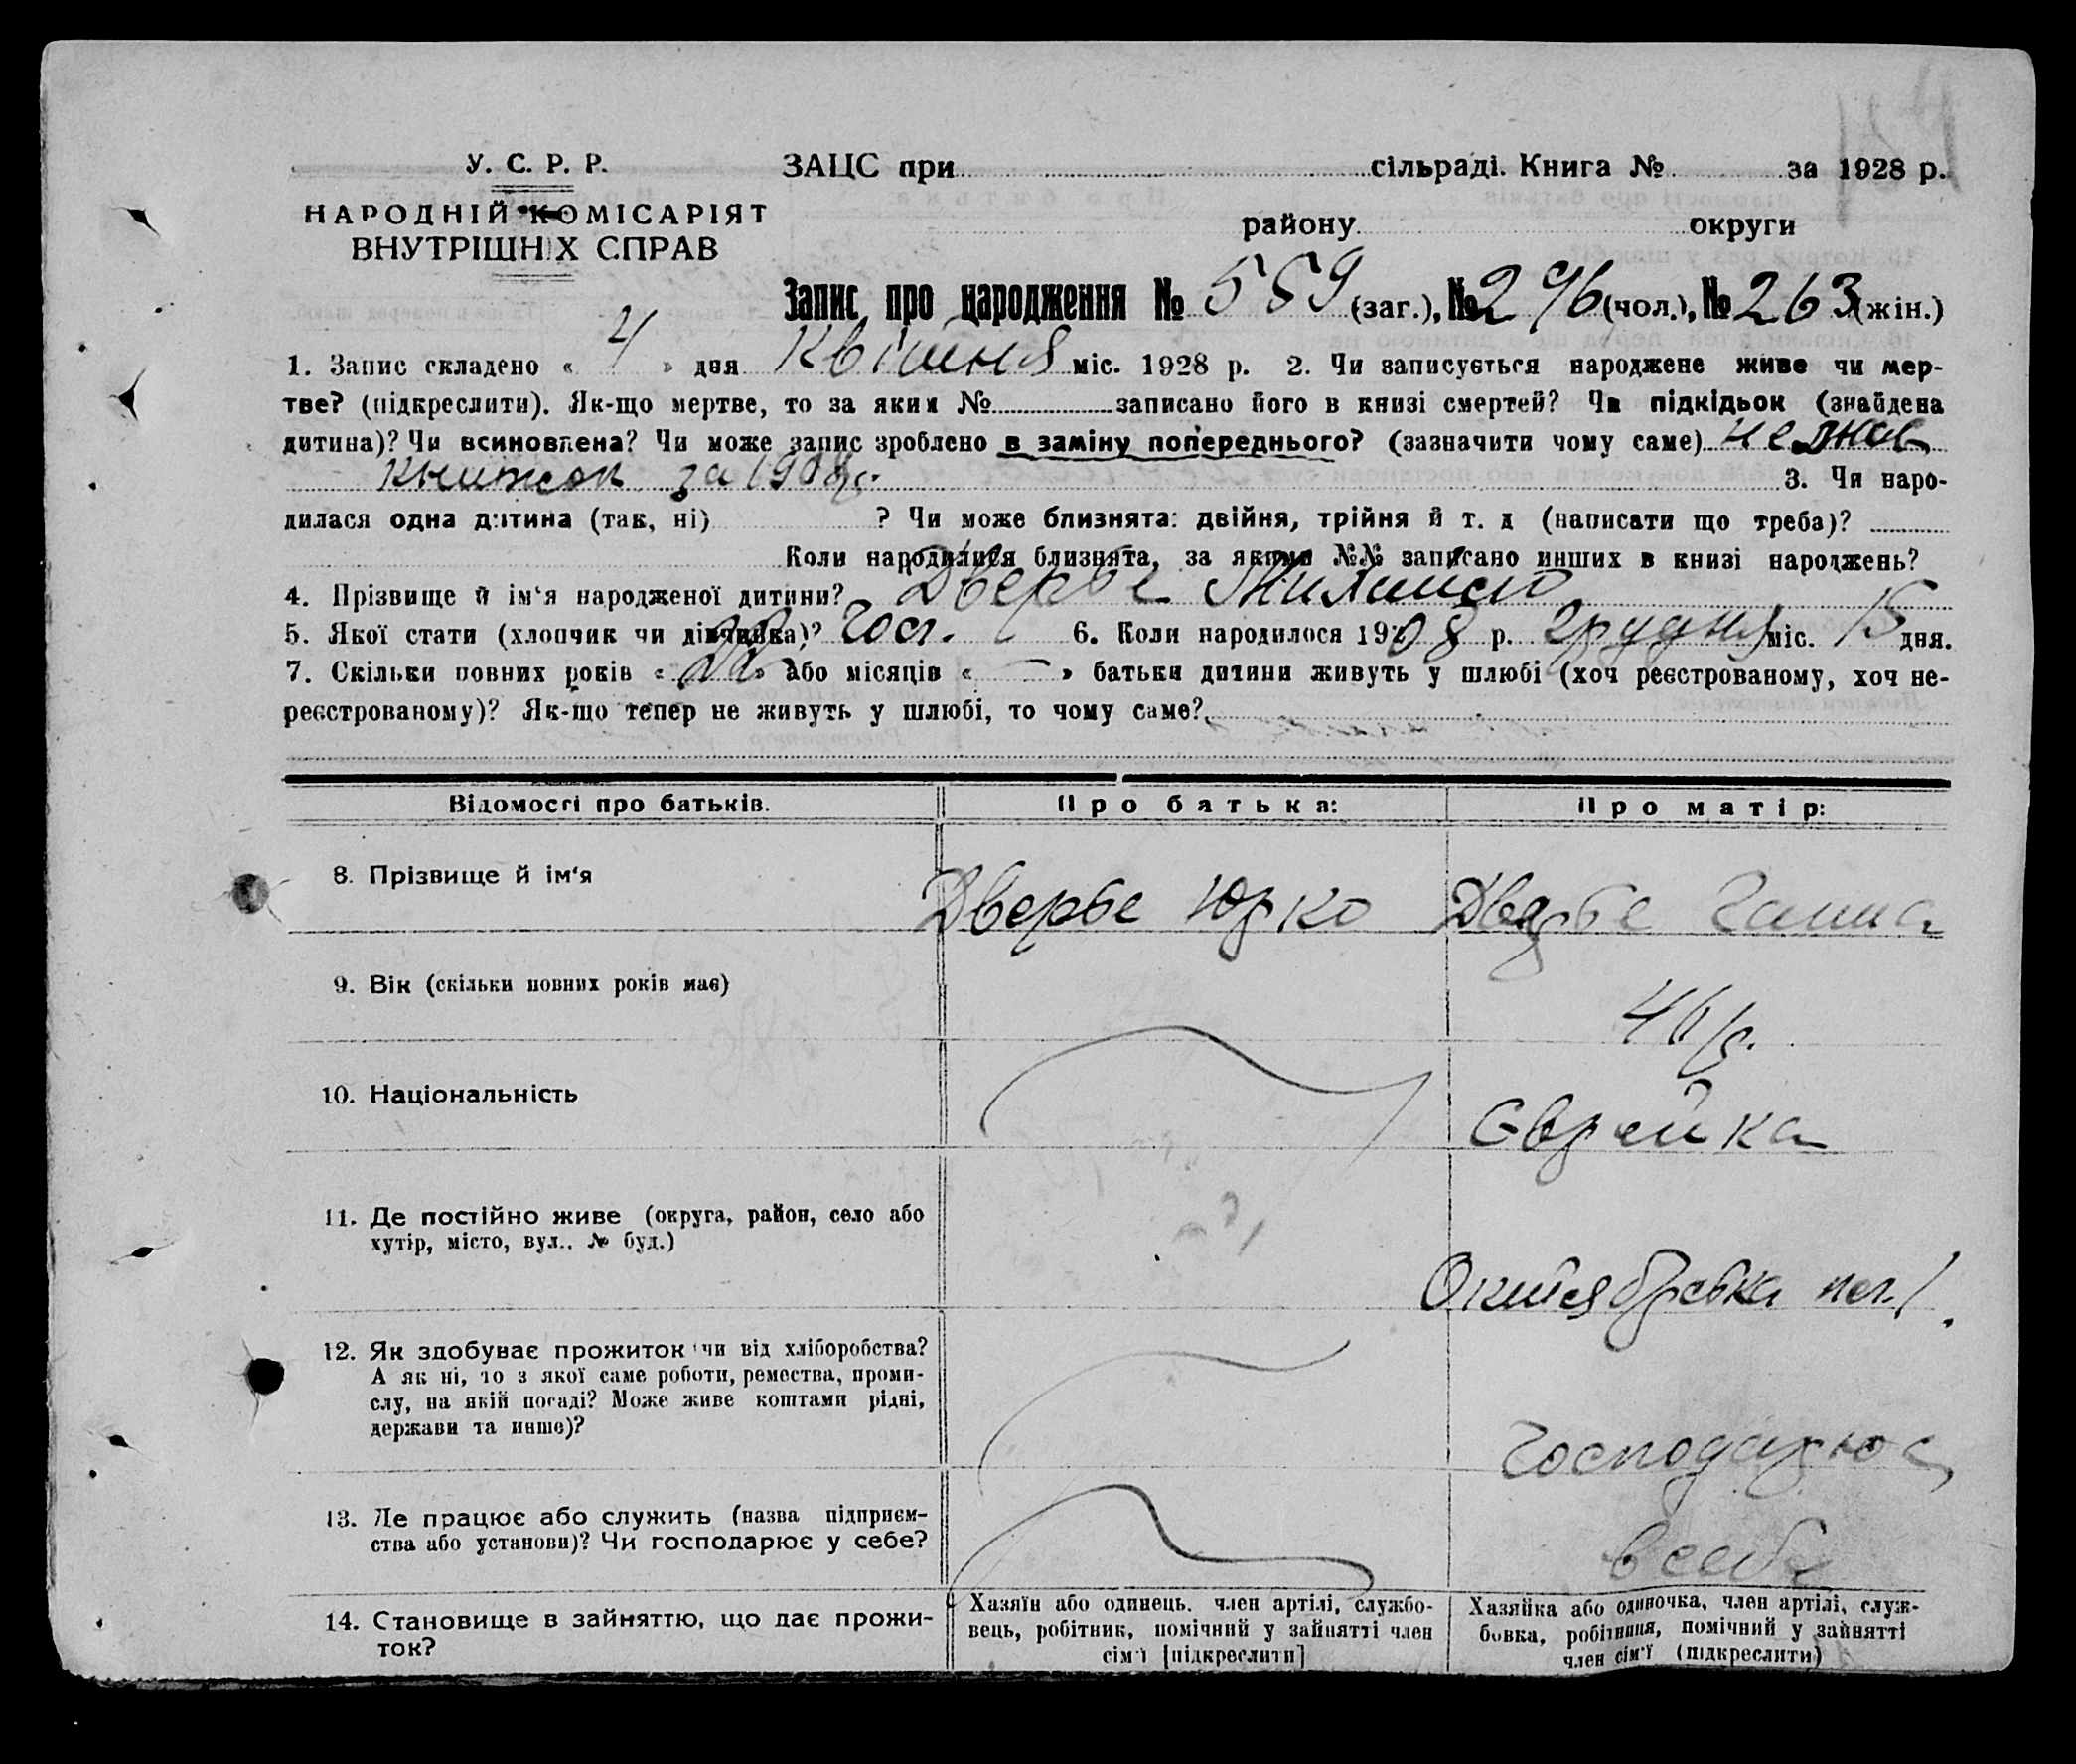 У. С. Р. Р.
НАРОДНІЙ КОМІСАРІЯТ
ВНУТРІШНІХ СПРАВ
ЗАЦС при сільраді. Книга № за 1928 р.
району округи
Запис про народження № 559 (заг.), № 296 (чол.), № 263 (жін.)
1. Запис складено « 4 » дня Квітня міс. 1928 р. 2. Чи записується народжене живе чи мер-
тве? (підкреслити). Як-що мертве, то за яким № записано його в книзі смертей? Чи підкідьок (знайдена
дитина)? Чи всиновлена? Чи може запис зроблено в заміну попереднього? (зазначити чому саме)
книжок за 1908 3. Чи наро-
дилася одна дитина (так, ні) ? Чи може близнята: двійня, трійня й т. д (написати що треба)?
Коли народилися близнята, за якими №№ записано инших в книзі народжень?
4. Прізвище й ім'я народженої дитини? Двербе
5. Якої стати (хлопчик чи дівчинка)? 6. Коли народилося 1908 р. Грудня міс. 15 дня.
7. Скільки повних років « » або місяців « — » батьки дитини живуть у шлюбі (хоч реєстрованому, хоч не-
реєстрованому)? Як-що тепер не живуть у шлюбі, то чому саме?
Відомості про батьків. Про батька: Про матір:
8. Прізвище й ім'я Двербе Юрко Двербе Ганна
9. Вік (скільки повних років має)
10. Національність Єврейка
11. Де постійно живе (округа, район, село або
хутір, місто, вул.. № буд.)
12. Як здобуває прожиток чи від хліборобства?
А як ні, то з якої саме роботи, ремества, проми-
слу, на якій посаді? Може живе коштами рідні,
держави та инше)?
13. Де працює або служить (назва підприєм-
ства або установи)? Чи господарює у себе?
Господарює
в себе
14. Становище в зайняттю, що дає прожи-
ток?
Хазяїн або одинець. член артілі, службо-
вець, робітник, помічний у зайнятті член
сім'ї [підкреслити]
Хазяйка або одиночка, член артілі, служ-
бовка, робітниця, помічний у зайнятті
член сім'ї (підкреслити)